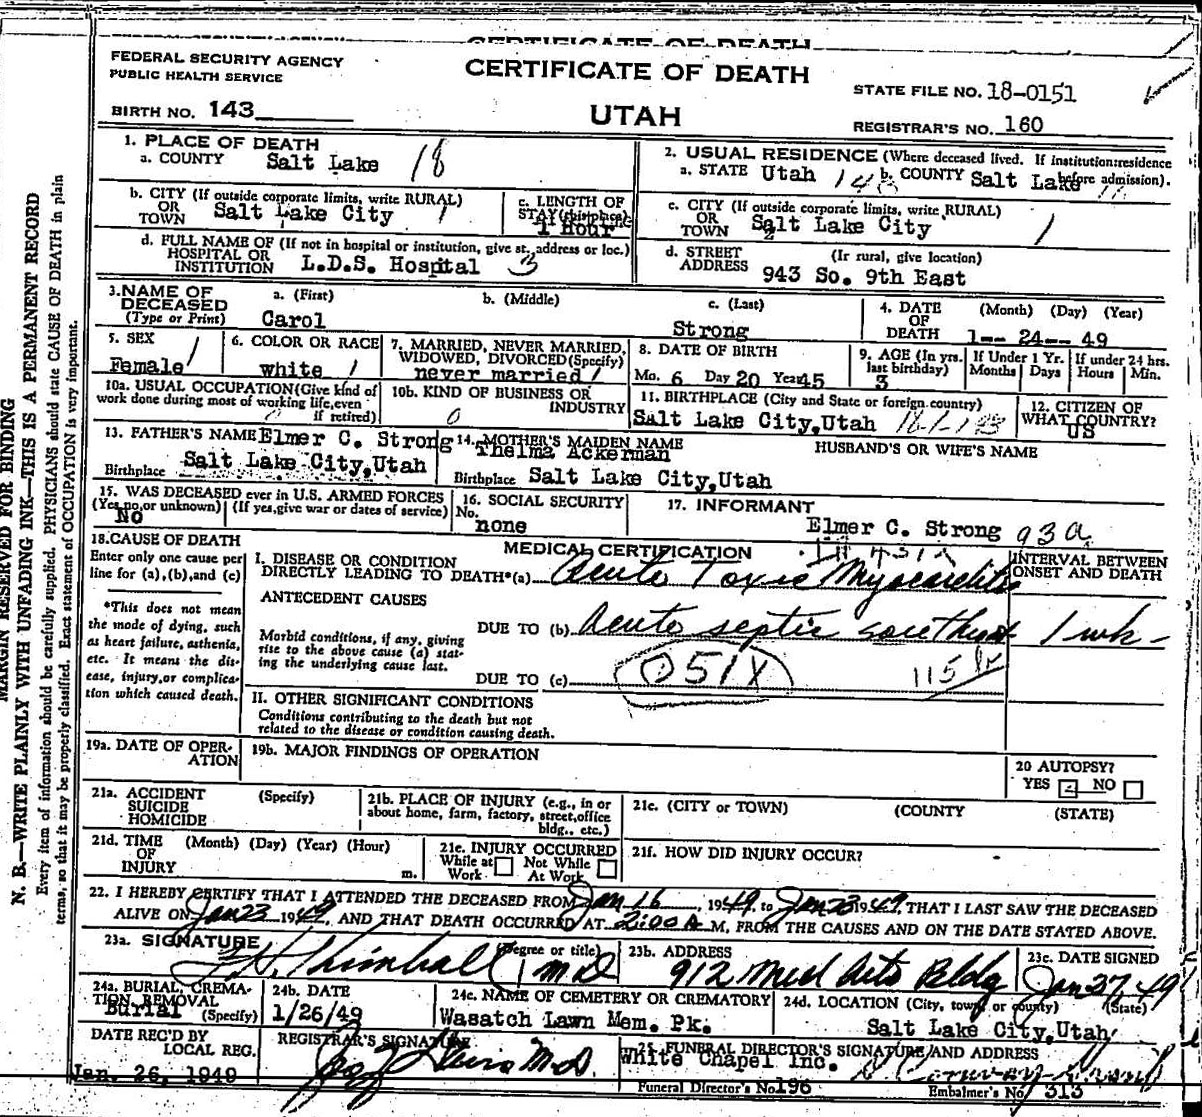 CERTIFICATE OF DEATH
FEDERAL SECURITY AGENCY
PUBLIC HEALTH SERVICE
CERTIFICATE OF DEATH
STATE FILE NO. 18-0151
BIRTH NO. 143
UTAH
REGISTRAR'S NO. 160
MARGIN RESERVED FOR BINDING
N. B.—WRITE PLAINLY WITH UNFADING INK—THIS IS A PERMANENT RECORD
Every item of information should be carefully supplied. PHYSICIANS should state CAUSE OF DEATH in plain
terms, so that it may be properly classified. Exact statement of OCCUPATION is very important.
1. PLACE OF DEATH
a. COUNTY Salt Lake 18
2. USUAL RESIDENCE (Where deceased lived. If institution:residence
before admission).
a. STATE Utah 143 b. COUNTY Salt Lake
b. CITY (If outside corporate limits, write RURAL)
OR
TOWN Salt Lake City 1
c. LENGTH OF
STAY (this place)
1 Hour
c. CITY (If outside corporate limits, write RURAL)
OR
TOWN Salt Lake City 1
d. FULL NAME OF (If not in hospital or institution, give st. address or loc.)
HOSPITAL OR
INSTITUTION L.D.S. Hospital 3
d. STREET (Ir rural, give location)
ADDRESS 943 So. 9th East
3. NAME OF
DECEASED
(Type or Print)
a. (First) b. (Middle) c. (Last)
Carol Strong
4. DATE (Month) (Day) (Year)
OF
DEATH 1-- 24-- 49
5. SEX
Female 1
6. COLOR OR RACE
white 1
7. MARRIED, NEVER MARRIED,
WIDOWED, DIVORCED (Specify)
never married 1
8. DATE OF BIRTH
Mo. 6 Day 20 Year 45
9. AGE (In yrs.
last birthday)
3
If Under 1 Yr.
Months Days
If under 24 hrs.
Hours Min.
10a. USUAL OCCUPATION (Give kind of
work done during most of working life, even
if retired)
0
10b. KIND OF BUSINESS OR
INDUSTRY
0
11. BIRTHPLACE (City and State or foreign country)
Salt Lake City, Utah
12. CITIZEN OF
WHAT COUNTRY?
US
13. FATHER'S NAME Elmer C. Strong
Birthplace Salt Lake City, Utah
14. MOTHER'S MAIDEN NAME
Thelma Ackerman
Birthplace Salt Lake City, Utah
HUSBAND'S OR WIFE'S NAME
15. WAS DECEASED ever in U.S. ARMED FORCES
(Yes, no, or unknown) (If yes, give war or dates of service)
No
16. SOCIAL SECURITY
No.
none
17. INFORMANT
Elmer C. Strong 93a
18. CAUSE OF DEATH
Enter only one cause per
line for (a), (b), and (c)
*This does not mean
the mode of dying, such
as heart failure, asthenia,
etc. It means the dis-
ease, injury, or complica-
tion which caused death.
MEDICAL CERTIFICATION
I. DISEASE OR CONDITION
DIRECTLY LEADING TO DEATH* (a) Acute Toxic Myocarditis
INTERVAL BETWEEN
ONSET AND DEATH
ANTECEDENT CAUSES
Morbid conditions, if any, giving
rise to the above cause (a) stat-
ing the underlying cause last.
DUE TO (b) Acute septic sore throat 1 wk-
DUE TO (c) 051X 115
II. OTHER SIGNIFICANT CONDITIONS
Conditions contributing to the death but not
related to the disease or condition causing death.
19a. DATE OF OPER-
ATION
19b. MAJOR FINDINGS OF OPERATION
20 AUTOPSY?
YES NO
21a. ACCIDENT (Specify)
SUICIDE
HOMICIDE
21b. PLACE OF INJURY (e.g., in or
about home, farm, factory, street, office
bldg., etc.)
21c. (CITY or TOWN) (COUNTY) (STATE)
21d. TIME (Month) (Day) (Year) (Hour)
OF
INJURY m.
21e. INJURY OCCURRED
While at Work Not While At Work
21f. HOW DID INJURY OCCUR?
22. I HEREBY CERTIFY THAT I ATTENDED THE DECEASED FROM Jan 16, 1949, to Jan 23 1949, THAT I LAST SAW THE DECEASED
ALIVE ON Jan 23 1949, AND THAT DEATH OCCURRED AT 2:00 A M, FROM THE CAUSES AND ON THE DATE STATED ABOVE.
23a. SIGNATURE (Degree or title)
Kimball MD
23b. ADDRESS
912 Med Arts Bldg
23c. DATE SIGNED
Jan 27, 49
24a. BURIAL, CREMA-
TION, REMOVAL
Burial (Specify)
24b. DATE
1/26/49
24c. NAME OF CEMETERY OR CREMATORY
Wasatch Lawn Mem. Pk.
24d. LOCATION (City, town, or county) (State)
Salt Lake City, Utah
DATE REC'D BY
LOCAL REG.
Jan. 26, 1949
REGISTRAR'S SIGNATURE
M.D.
25. FUNERAL DIRECTOR'S SIGNATURE AND ADDRESS
White Chapel Inc.
Funeral Director's No 196 Embalmer's No 313